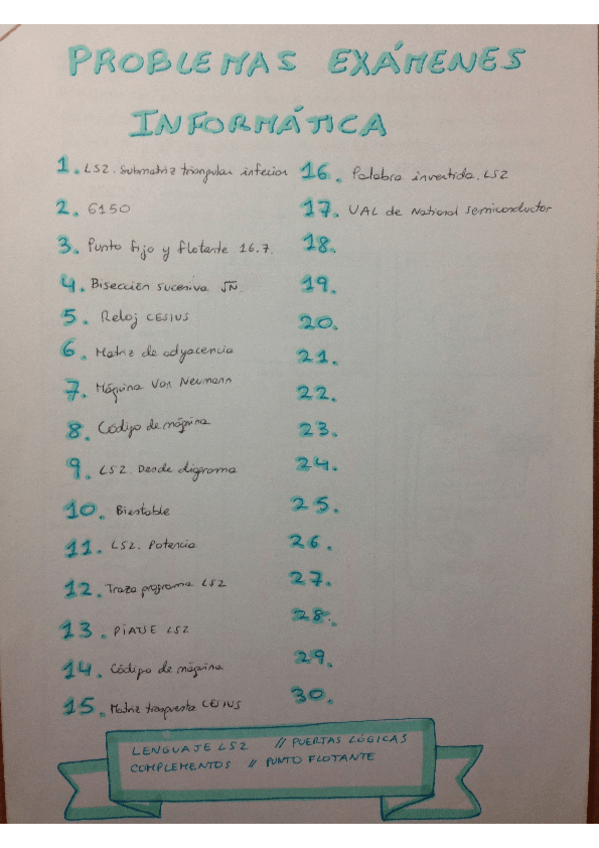 PROBLEMAS EXÁMENES
INFORMÁTICA
1. LS2. Submatriz triangular inferior
2. 6150
3. Punto fijo y flotante 16.7.
4. Bisección sucesiva √N.
5. Reloj CESIUS
6. Matriz de adyacencia
7. Máquina Von Neumann
8. Código de máquina
9. LS2. Desde digrama
10. Biestable
11. LS2. Potencia
12. Traza programa LS2
13. PIATSE LS2
14. Código de máquina
15. Matriz traspuesta CESIUS
16. Palabra invertida. LS2
17. UAL de National Semiconductor
18.
19.
20.
21.
22.
23.
24.
25.
26.
27.
28.
29.
30.
LENGUAJE LS2 // PUERTAS LÓGICAS
COMPLEMENTOS // PUNTO FLOTANTE